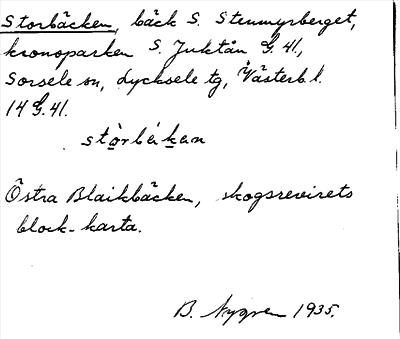 Storbäcken, bäck S. Stenmyrberget,
kronoparken S. Juktån G. 41,
Sorsele sn, Lycksele tg, Västerb. l.
14 G. 41.
stòrbékan
Östra Blaikbäcken, skogsrevirets
block-karta.
B. Nygren 1935.